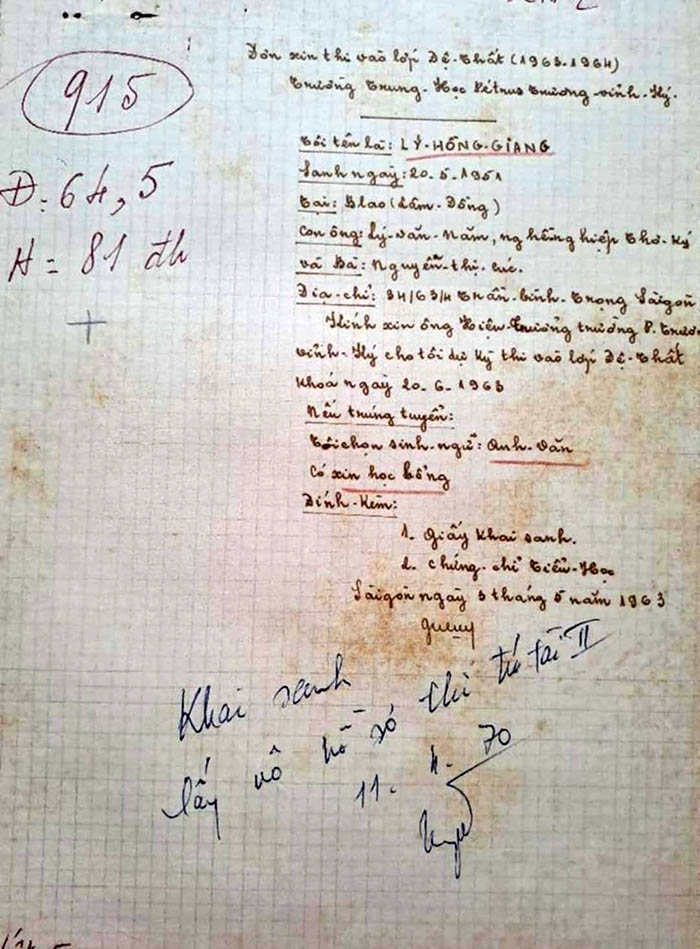 915
Đ: 64,5
H = 81 đh
+
Đơn xin thi vào lớp Đệ-Thất (1963-1964)
Trường Trung-Học Pétrus Trương-vĩnh-Ký.
Tôi tên là: LÝ-HỒNG-GIANG
Sanh ngày: 20-5-1951
Tại: Blao (Lâm-Đồng)
Con ông: Lý-văn-Năm, nghề nghiệp Thơ-Ký
và Bà: Nguyễn-thị-Cúc.
Địa-chỉ: 34/63/4 Trần-bình-Trọng Sàigòn
Kính xin ông Hiệu-Trưởng trường P. Trươn
vĩnh-Ký cho tôi dự kỳ thi vào lớp Đệ-Thất
khoá ngày 20-6-1963
Nếu trúng tuyển:
Tôi chọn sinh-ngữ: Anh-Văn
Có xin học bổng
Đính-Kèm:
1. Giấy khai sanh.
2. Chứng-chỉ Tiểu-Học
Sàigòn ngày 3 tháng 5 năm 1963
Khai sanh
lấy vô hồ sơ thi tú tài II
11. 4. 70